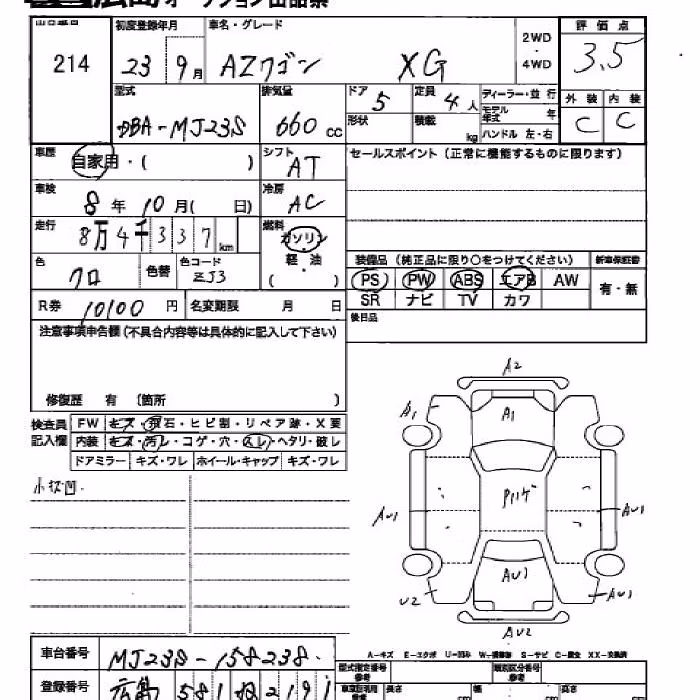 広島 オークション出品票
出品番号 初度登録年月 車名・グレード 2WD・4WD 評価点
214 23 9月 AZワゴン XG 3.5
型式 排気量 ドア 5 定員 4人 ディーラー・並行 外装 内装
DBA-MJ23S 660cc 形状 積載 kg モデル年式 年 C C
ハンドル 左・右
車歴 自家用・( ) シフト AT セールスポイント(正常に機能するものに限ります)
車検 8年10月( 日) 冷房 AC
走行 8万4千337km 燃料 ガソリン
軽・油
( )
色 クロ 色替 色コード ZJ3
装備品(純正品に限り○をつけてください) 新車保証書
PS PW ABS エアB AW 有・無
SR ナビ TV カワ
R券 10100円 名変期限 月 日 後日品
注意事項申告欄(不具合内容等は具体的に記入して下さい)
修復歴 有 〔箇所 〕
検査員記入欄 FW キズ・飛石・ヒビ割・リペア跡・X要
内装 キズ・汚レ・コゲ・穴・スレ・ヘタリ・破レ
ドアミラー キズ・ワレ ホイール・キャップ キズ・ワレ
小キズ凹.
A2
A1 A1
Pハゲ
AU1 AU1
AU1
U2 AU1
AU2
A-キズ E-エクボ U-凹み W-補修跡 S-サビ C-腐食 XX-交換済
車台番号 MJ23S-158238.
型式指定番号 類別区分番号
参考
登録番号 広島 581 2191
長さ 幅 高さ
cm cm cm